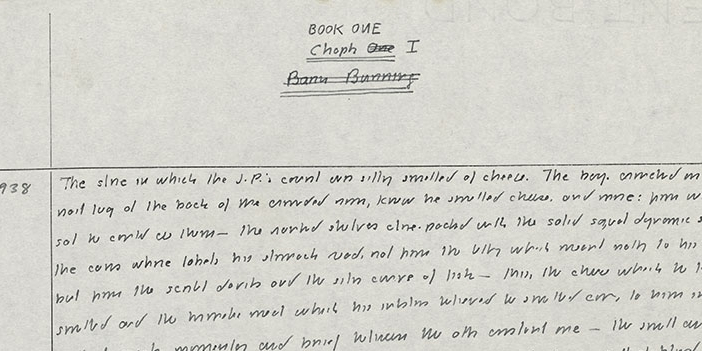 BOOK ONE
Chapt One I
Barn Burning
938 The store in which the J.P.'s court was sitting smelled of cheese. The boy, crouched on
nail keg at the back of the crowded room, knew he smelled cheese, and more: from
sat he could see them — the ranked shelves close-packed with the solid squat dynamic
the cans whose labels his stomach read, not from the lettering which meant nothing to his
but from the scarlet devils and the silver curve of fish — this, the cheese which he
smelled and the hermetic meat which his intestines believed he smelled to him in
momentary and brief between the other constant one — the smell and